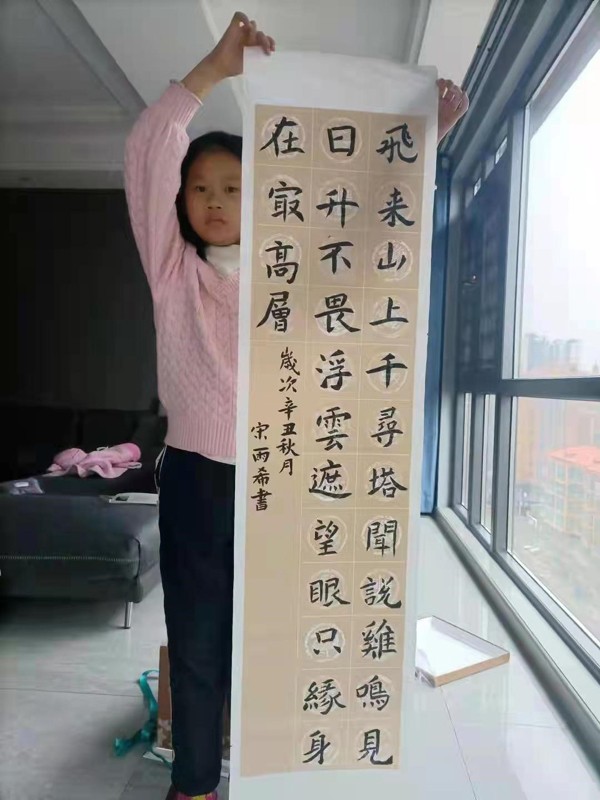 飛来山上千尋塔聞説雞鳴見
日升不畏浮雲遮望眼只緣身
在冣高層
歲次辛丑秋月
宋雨希書